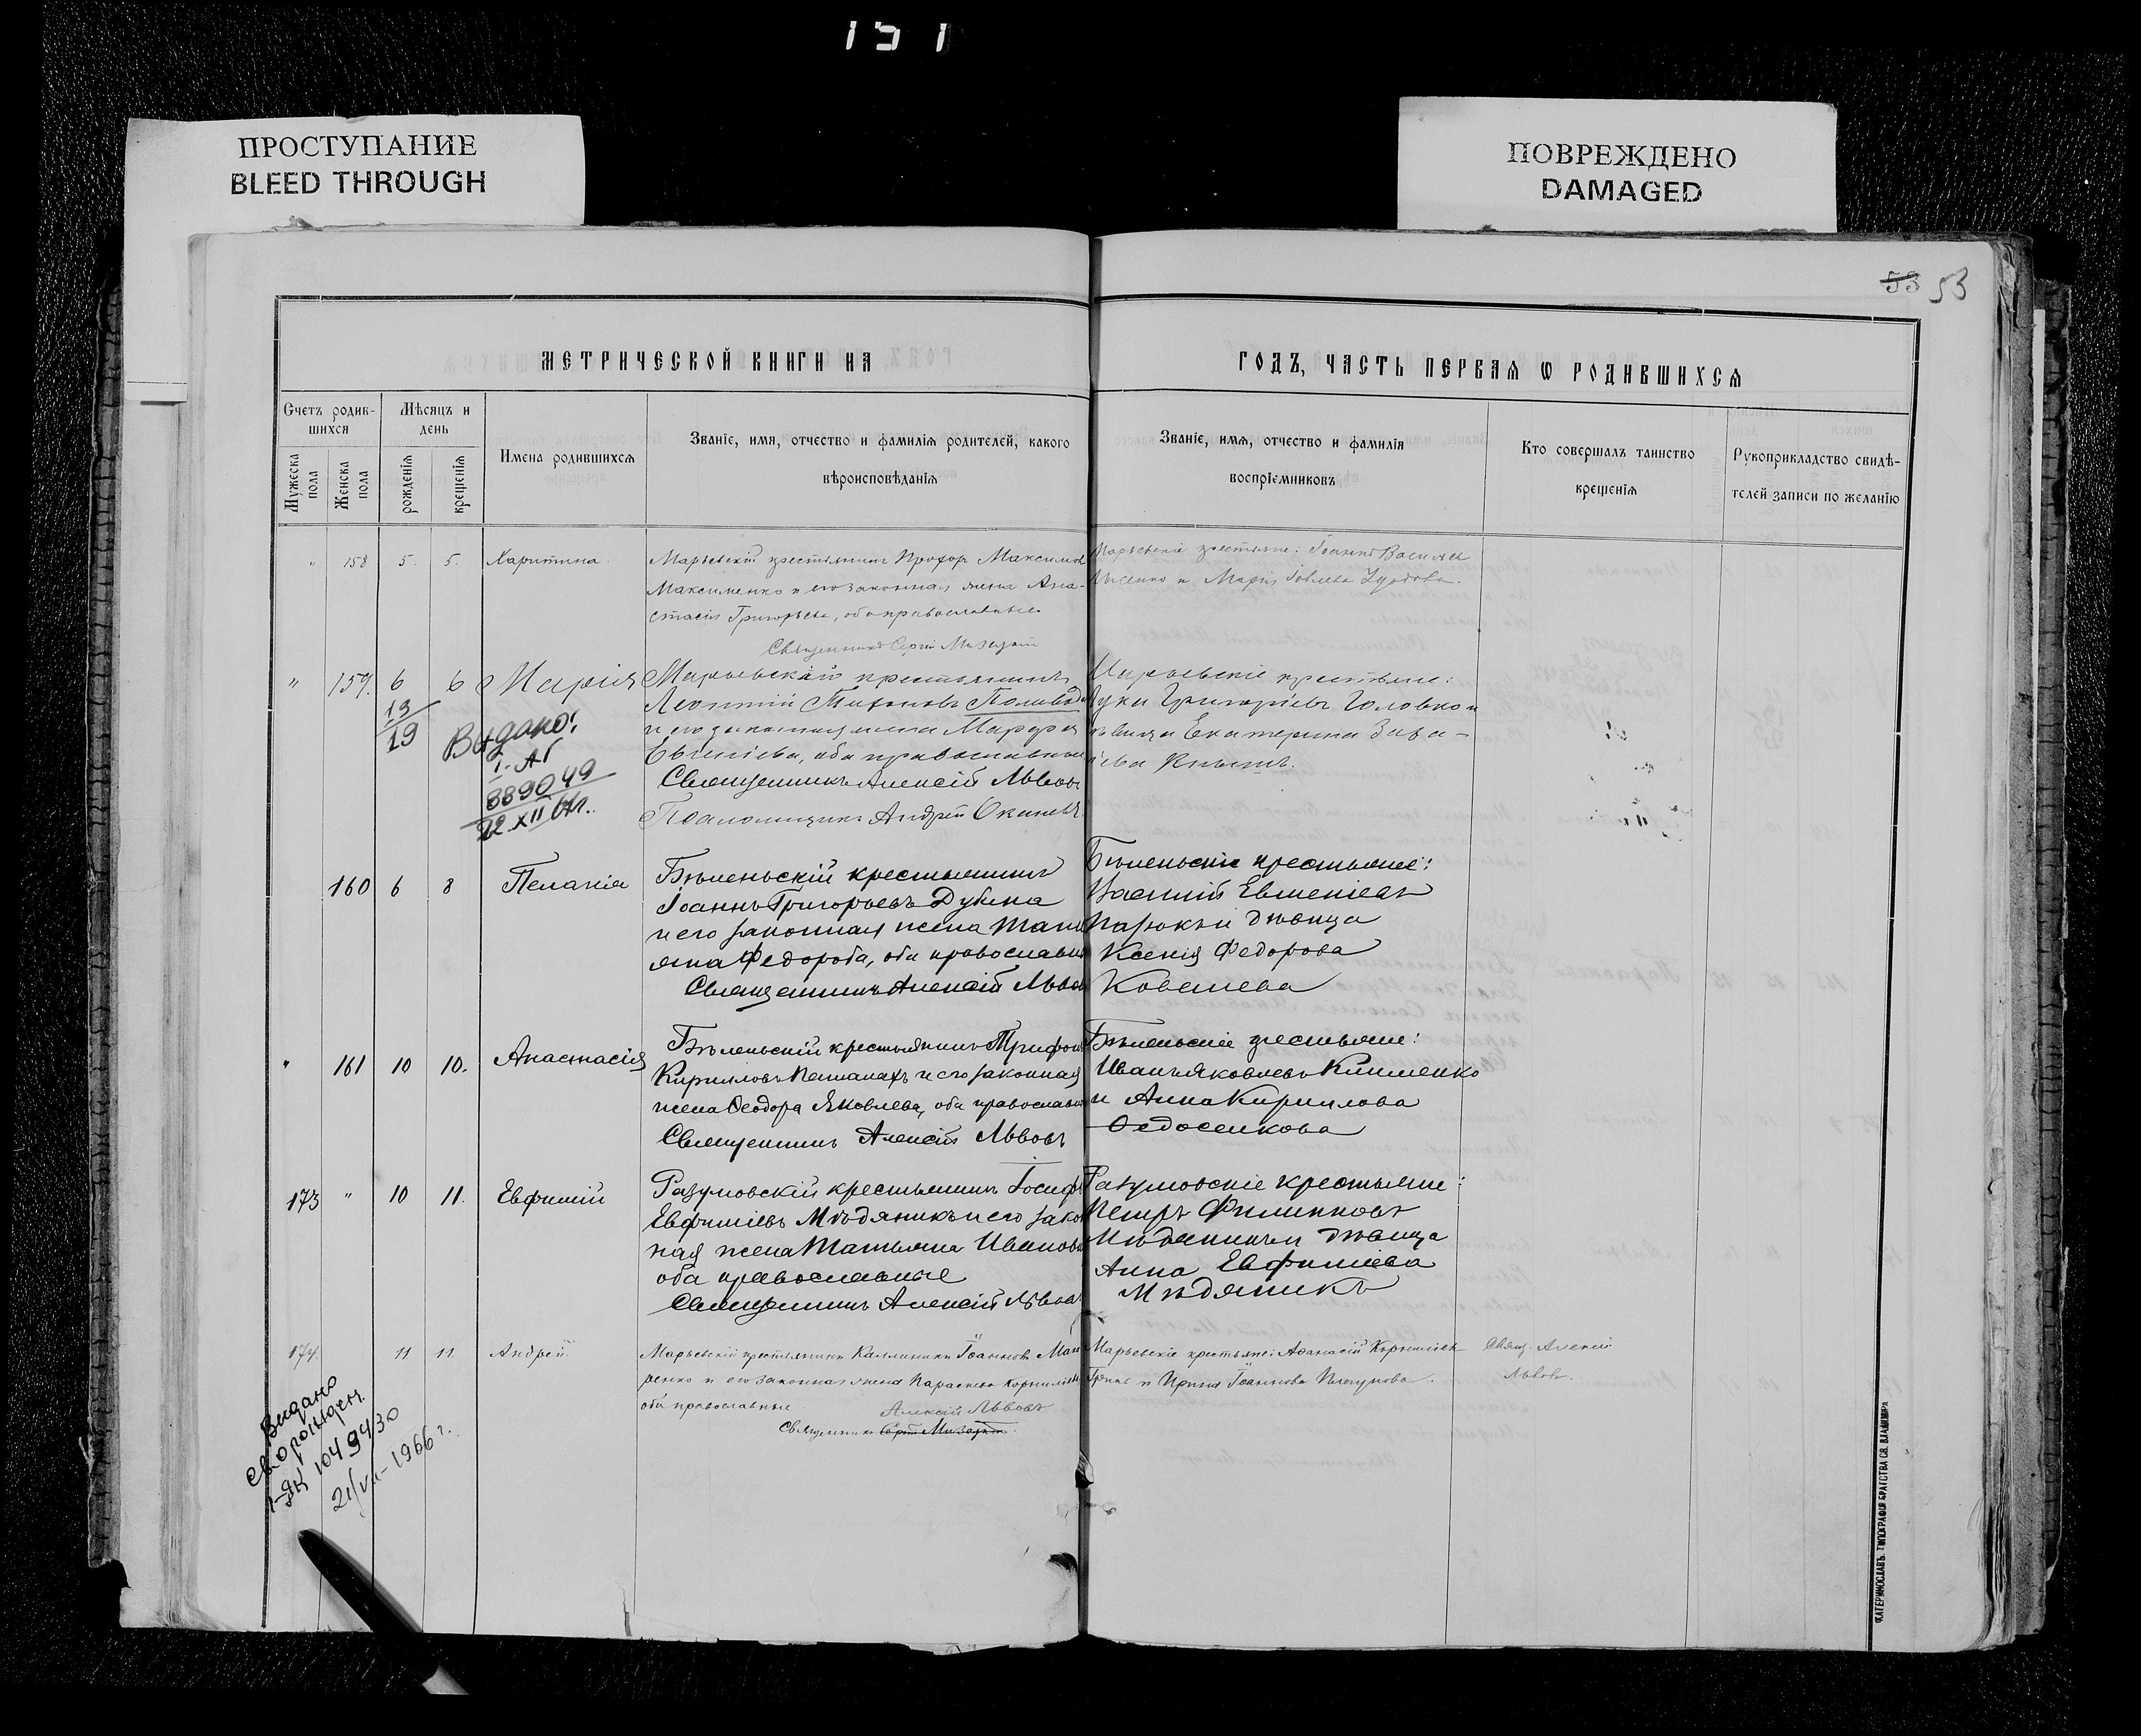 151
ПРОСТУПАНИЕ
BLEED THROUGH
ПОВРЕЖДЕНО
DAMAGED
53 53
МЕТРИЧЕСКОЙ КНИГИ НА
ГОДЪ, ЧАСТЬ ПЕРВАЯ Ѡ РОДИВШИХСЯ
Счетъ родив-
шихся
Мужеска пола
Женска пола
Мѣсяцъ и
день
рожденія
крещенія
Имена родившихся
Званіе, имя, отчество и фамилія родителей, какого
вѣроисповѣданія
Званіе, имя, отчество и фамилія
воспріемниковъ
Кто совершалъ таинство
крещенія
Рукоприкладство свидѣ-
телей записи по желанію
" 158 5. 5. Харитина
Марьевскій крестьянинъ Прохоръ Максимов
Максименко и его законная жена Ана-
стасія Григорьева, оба православные
Священникъ Сергій
Марьевскіе крестьяне: Іоаннъ Васильев
Лысенко и Марія
" 159. 6 6 Марія
19
19
Видано:
I-АГ
889049
22.XII 61г.
Марьевскій крестьянинъ
Леонтій Тихоновъ Поливода
и его законная жена Марфа
Евгеніева, оба православные
Священникъ Алексій Львовъ
Псаломщикъ Андрей
Марьевскіе крестьяне:
Лука Григорьевъ Головко и
дѣвица Екатерина
160 6 8 Пелагія
Бѣленьскій крестьянинъ
Іоаннъ Григорьевъ Дубина
и его законная жена Тать
яна Федорова, оба православн
Священникъ Алексій Львов
Бѣленьскіе крестьяне:
Василій Евменіевъ
дѣвица
Ксенія Федорова
Ковалева
" 161 10 10. Анастасія
Бѣленьскій крестьянинъ Трифон
Кирилловъ и его законная
жена Ѳеодора Яковлева, оба православн
Священникъ Алексій Львовъ
Бѣленьскіе крестьяне:
Иванъ Яковлевъ Клименко
и Анна Кириллова
Федосенкова
173 " 10 11. Евфимій
Разумовскій крестьянинъ Іосифъ
Евфиміевъ Мѣдяникъ и его закон
ная жена Татьяна Иванова
оба православные
Священникъ Алексій Львовъ
Разумовскіе крестьяне:
Петръ Филипповъ
Мѣдяникъ и дѣвица
Анна Евфиміева
Мѣдяникъ
174 11 11 Андрей.
Марьевскій крестьянинъ Каллиникъ Іоанновъ Мак
ренко и его законная жена Параскева Корниліева
оба православные
Алексій Львовъ
Священникъ Сергій
Марьевскіе крестьяне: Аѳанасій Корниліев
и Ирина Іоаннова
Свящ. Алексій
Львовъ.
Видано
св♦ рожден.
I-ЯК 1049430
21/VII-1966 г.
КАТЕРИНОСЛАВЪ. ТИПОГРАФІЯ БРАТСТВА СВ. ВЛАДИМІРА